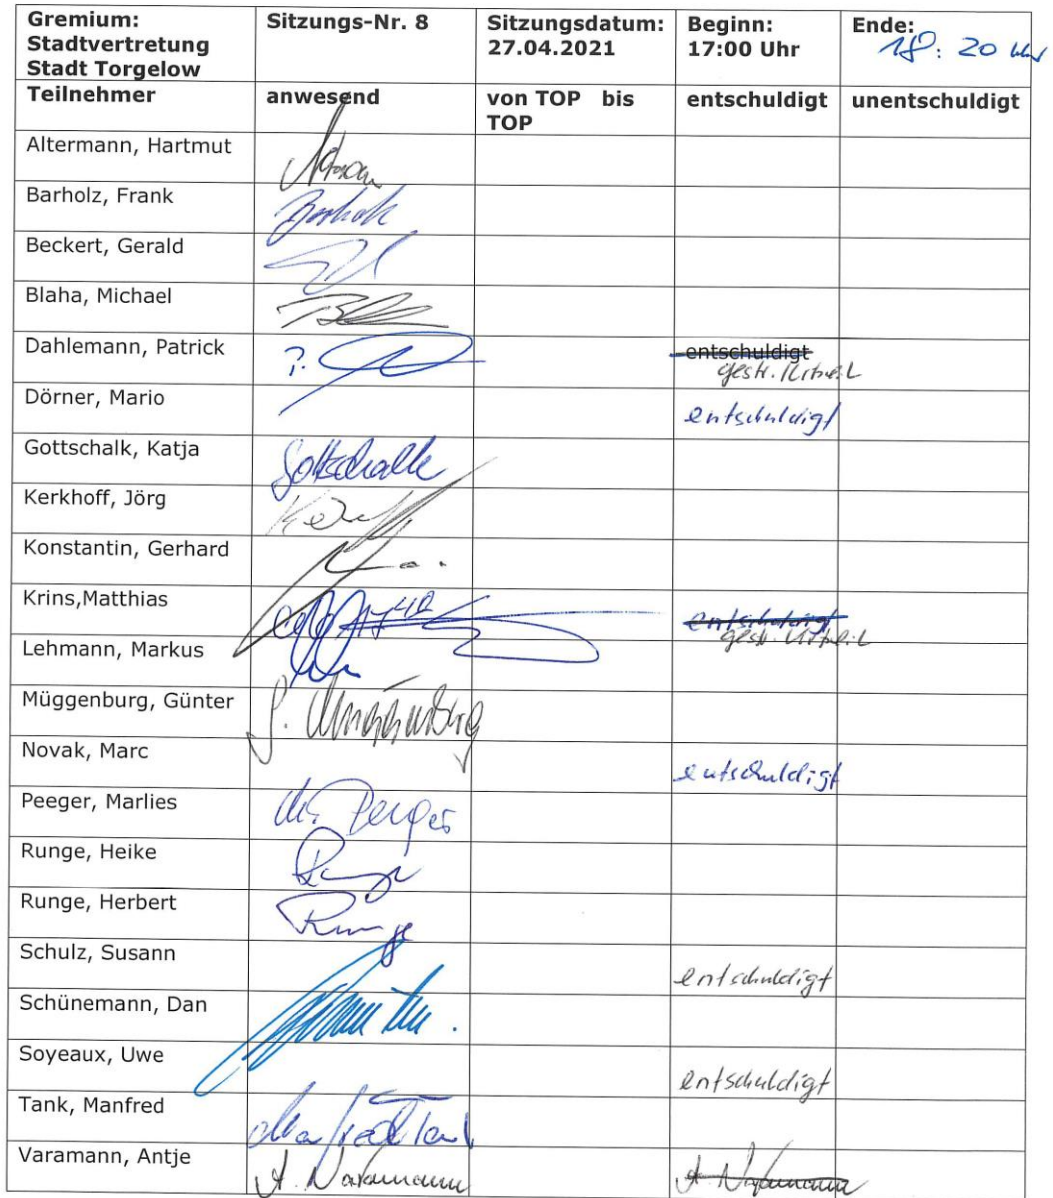 Gremium: Sitzungs-Nr. 8 Sitzungsdatum: Beginn: Ende:
Stadtvertretung 27.04.2021 17:00 Uhr 18:20 Uhr
Stadt Torgelow
Teilnehmer anwesend von TOP bis entschuldigt unentschuldigt
TOP
Altermann, Hartmut
Barholz, Frank
Beckert, Gerald
Blaha, Michael
Dahlemann, Patrick entschuldigt
gestr.
Dörner, Mario entschuldigt
Gottschalk, Katja Gottschalk
Kerkhoff, Jörg
Konstantin, Gerhard
Krins,Matthias 17 40 entschuldigt
gestr.
Lehmann, Markus
Müggenburg, Günter G. Müggenburg
Novak, Marc entschuldigt
Peeger, Marlies
Runge, Heike Runge
Runge, Herbert Runge
Schulz, Susann entschuldigt
Schünemann, Dan
Soyeaux, Uwe entschuldigt
Tank, Manfred Manfred Tank
Varamann, Antje A. Varamann A. Varamann